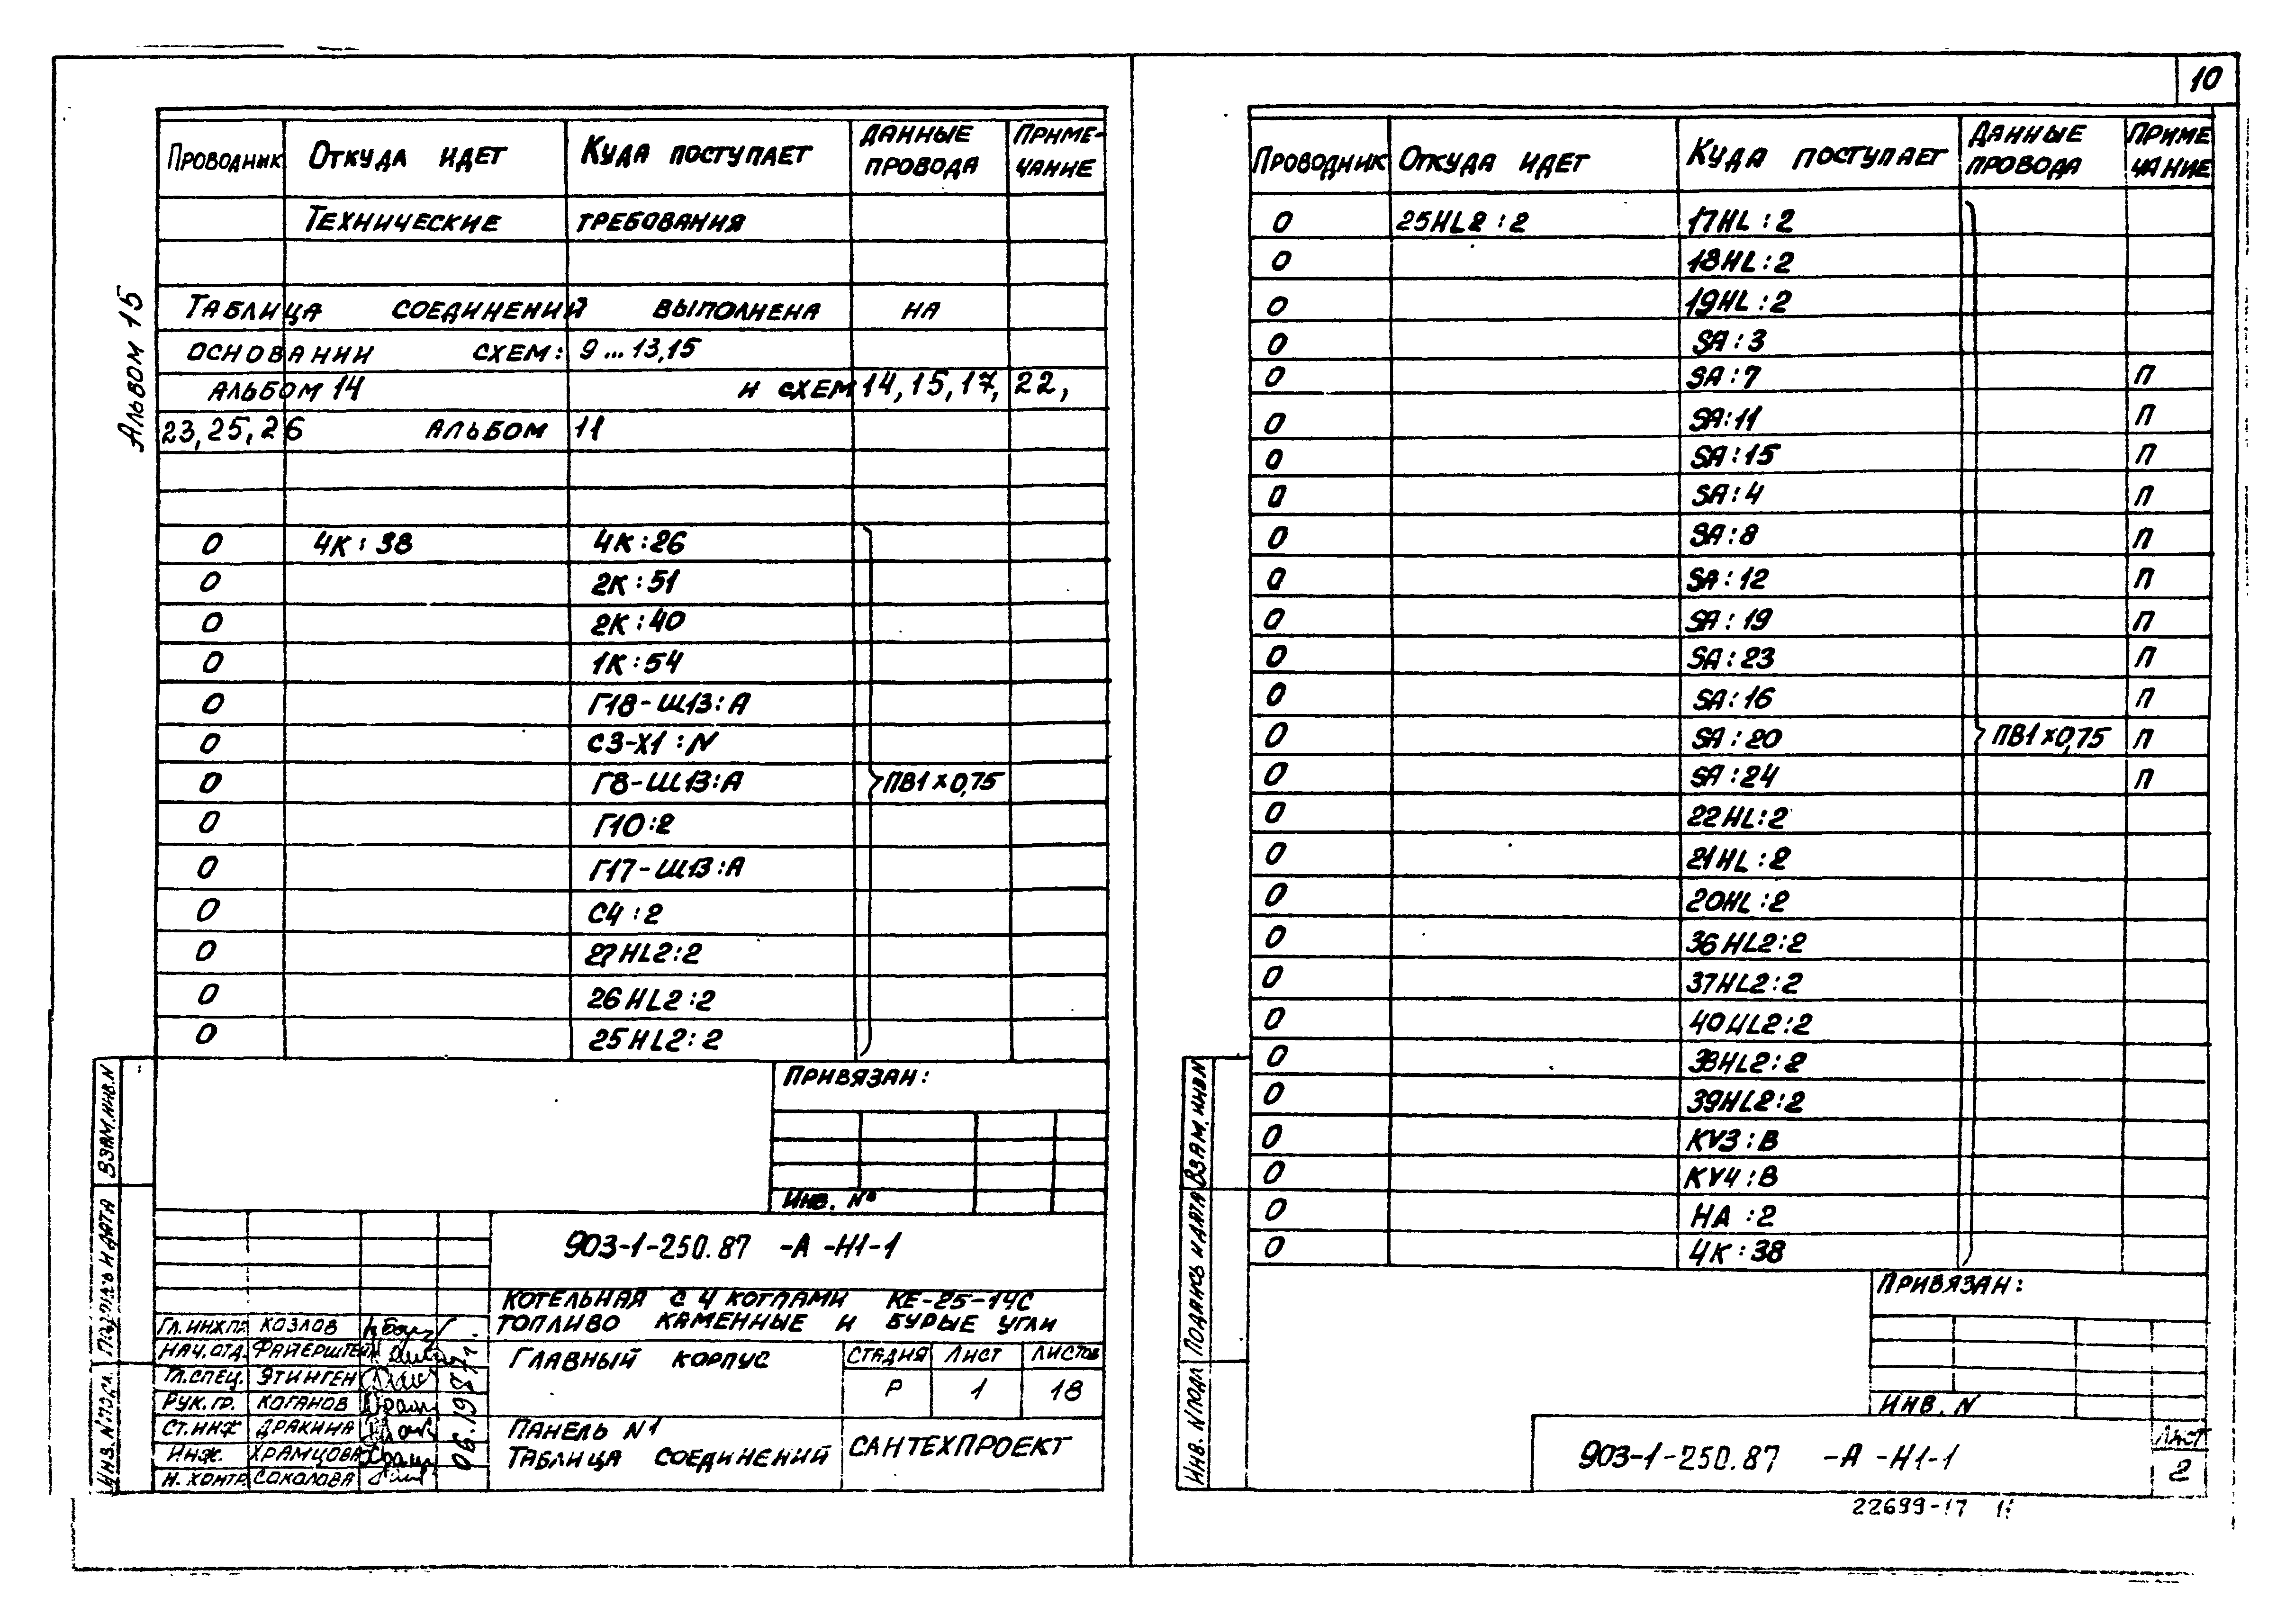 10
Альбом 15
Проводник Откуда идет Куда поступает Данные провода Приме-чание
Технические требования
Таблица соединений выполнена на
основании схем: 9...13,15
альбом 14 и схем 14, 15, 17, 22,
23, 25, 26 альбом 11
0 4К:38 4К:26
0 2К:51
0 2К:40
0 1К:54
0 Г18-Ш13:А
0 С3-Х1:N
0 Г8-Ш13:А ПВ1×0,75
0 Г10:2
0 Г17-Ш13:А
0 С4:2
0 27HL2:2
0 26HL2:2
0 25HL2:2
Привязан:
Инв. №
903-1-250.87 -А -Н1-1
Котельная с 4 котлами КЕ-25-14С
топливо каменные и бурые угли
Гл.инж.пр. Козлов
Нач.отд. Файерштейн
Гл.спец. Этинген
Рук.гр. Коганов
Ст.инж Дракина
Инж. Храмцова
Н. контр. Соколова
06.1987г.
Главный корпус
Стадия Лист Листов
Р 1 18
Панель N1
Таблица соединений
Сантехпроект
Инв. N подл. Подпись и дата Взам. инв. N
Проводник Откуда идет Куда поступает Данные провода Приме чание
0 25HL2:2 17HL:2
0 18HL:2
0 19HL:2
0 SA:3
0 SA:7 П
0 SA:11 П
0 SA:15 П
0 SA:4 П
0 SA:8 П
0 SA:12 П
0 SA:19 П
0 SA:23 П
0 SA:16 П
0 SA:20 ПВ1×0,75 П
0 SA:24 П
0 22HL:2
0 21HL:2
0 20HL:2
0 36HL2:2
0 37HL2:2
0 40HL2:2
0 38HL2:2
0 39HL2:2
0 KV3:В
0 KV4:В
0 НА:2
0 4К:38
Привязан:
Инв. N
903-1-250.87 -А -Н1-1
Лист
2
Инв. N подл Подпись и дата Взам. инв N
22699-17